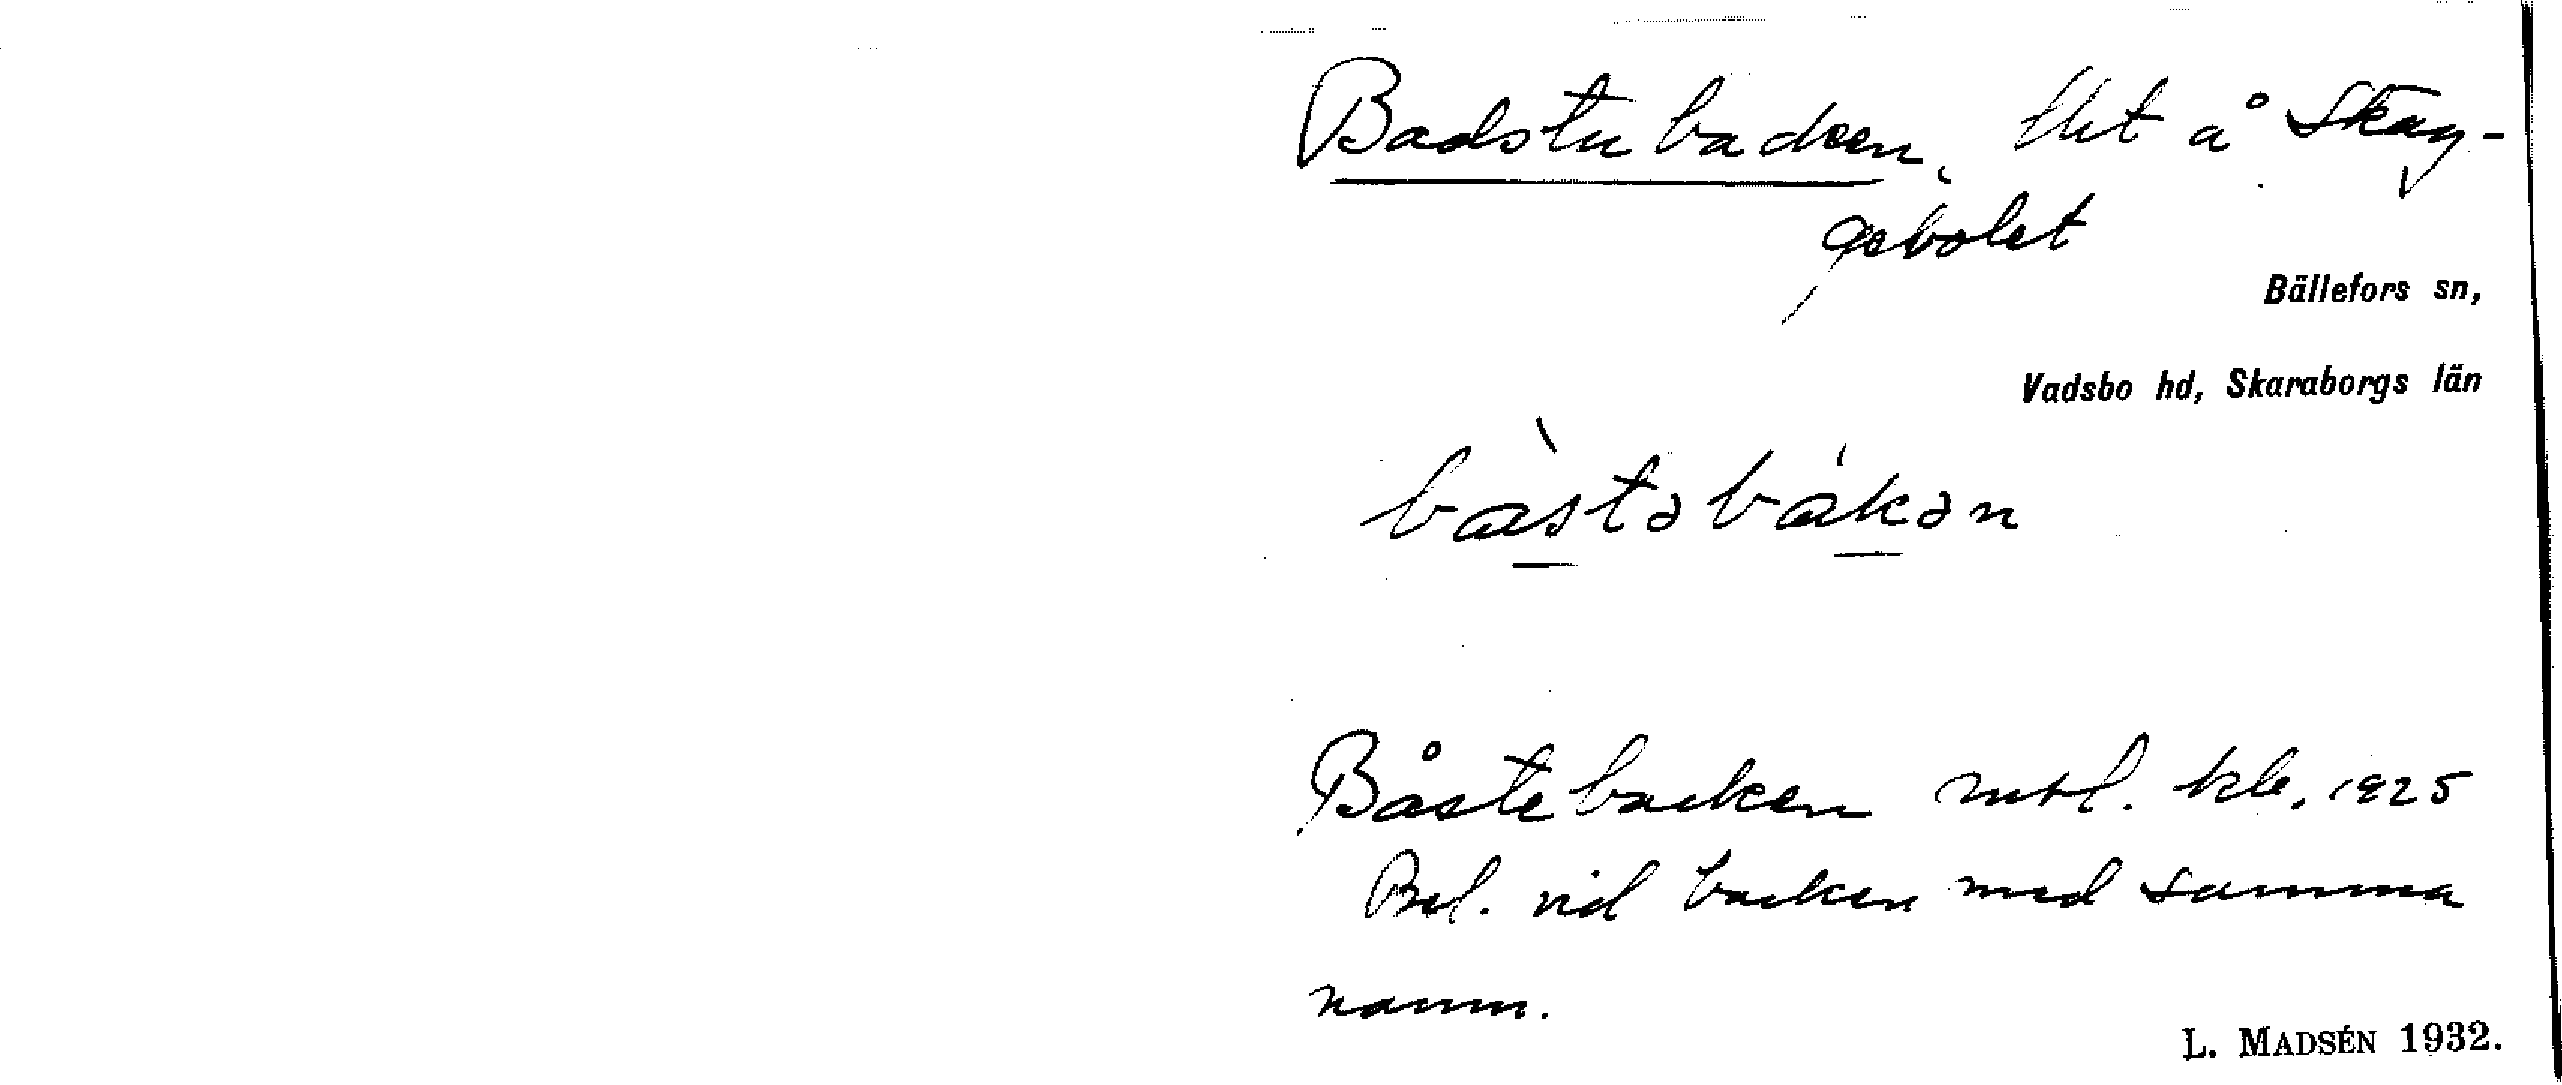 Badstubacken, lht å Skag-
gebolet
Bällefors sn,
Vadsbo hd, Skaraborgs län
bàstəbákən
Båstebacken mtl. kle. 1925
Bel. vid backen med samma
namn.
L. MADSÉN 1932.